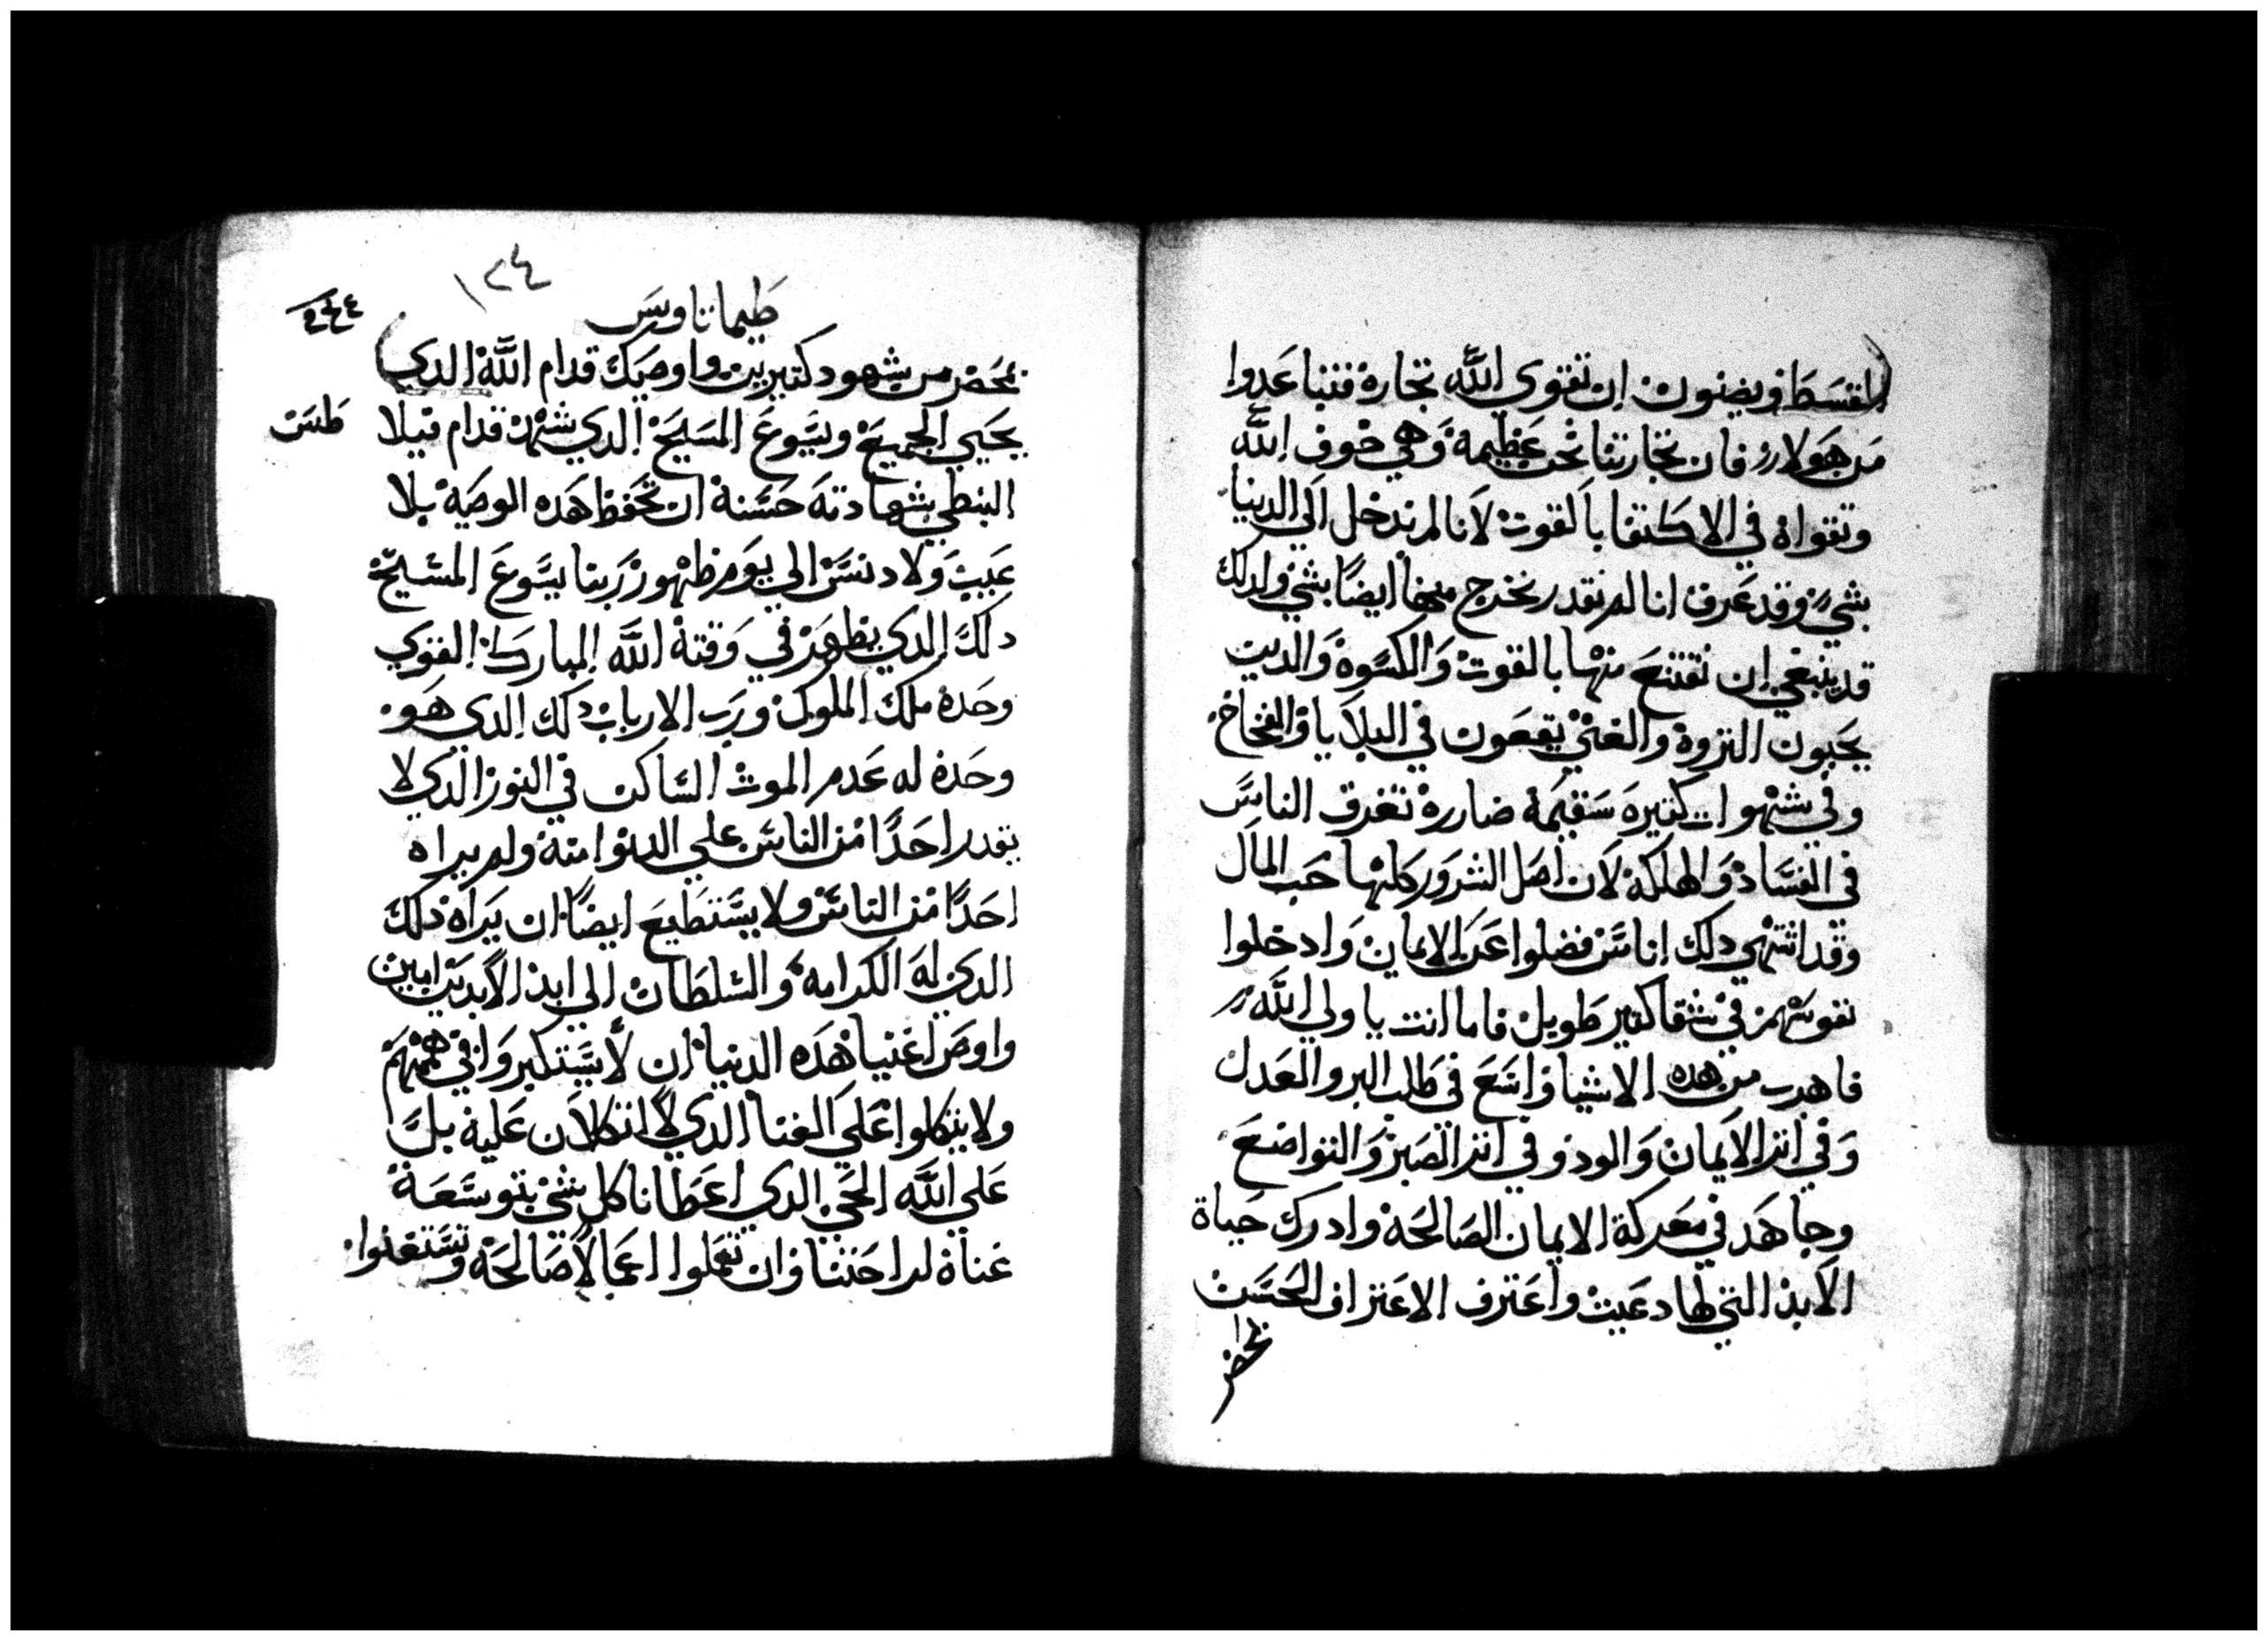 القسط ويضنون ان تقوي الله تجارة فتباعدوا
من هولاء فان تجارتنا نحن عظيمة وهي خوف الله
وتقواه في الاكتفا بالقوت لانا لم ندخل الي الدنيا
بشيء وقد عرف انا لم نقدر نخرج منها ايضًا بشي ولدلك
قد ينبغي ان نقتنع منها بالقوت والكسوة والدين
يحبون التروة والغني يقعون في البلايا والفخاخ
وفي شهوات كتيره سقيمة ضاررة تغرق الناس
في الفساد والهلكة لان اصل الشرور كلها حب المال
وقد اشتهي دلك اناس فضلوا عن الايمان وادخلوا
نفوسهم في شقا كتير طويل فاما انت يا ولي الله
فاهرب من هده الاشيا واسع في طلب البر والعدل
وفي اتر الايمان والود وفي اتر الصبر والتواضع
وجاهد في معركة الايمان الصالحة وادرك حياة
الابد التي لها دعيت واعترف الاعتراف الحسن
بمحضر
١٢٤
طيماتاوس
بمحضر من شهود كتيرين واوصيك قدام الله الدي
يحيي الجميع ويسوع المسيح الدي شهد قدام فيلا
طس
البنطي بشهادته حسنة ان تحفظ هده الوصية بلا
عيب ولا دنس الي يوم ظهور ربنا يسوع المسيح
دلك الدي يظهر في وقته الله المبارك القوي
وحده ملك الملوك ورب الارباب دلك الدي هو
وحده له عدم الموت الساكن في النور الدي لا
يقدر احدًا من الناس علي الدنوا منه ولم يراه
احدًا من الناس ولا يستطيع ايضًا ان يراه دلك
الدي له الكرامة والسلطان الي ابد الابدين امين
واوص اغنيا هده الدنيا ان لا يستكبروا في هممهم
ولا يتكلوا علي الغنا الدي لا اتكلان عليه بل
علي الله الحي الدي اعطانا كل شي بتوسعة
غناه لراحتنا وان تعملوا اعمالًا صالحة وتستغنوا